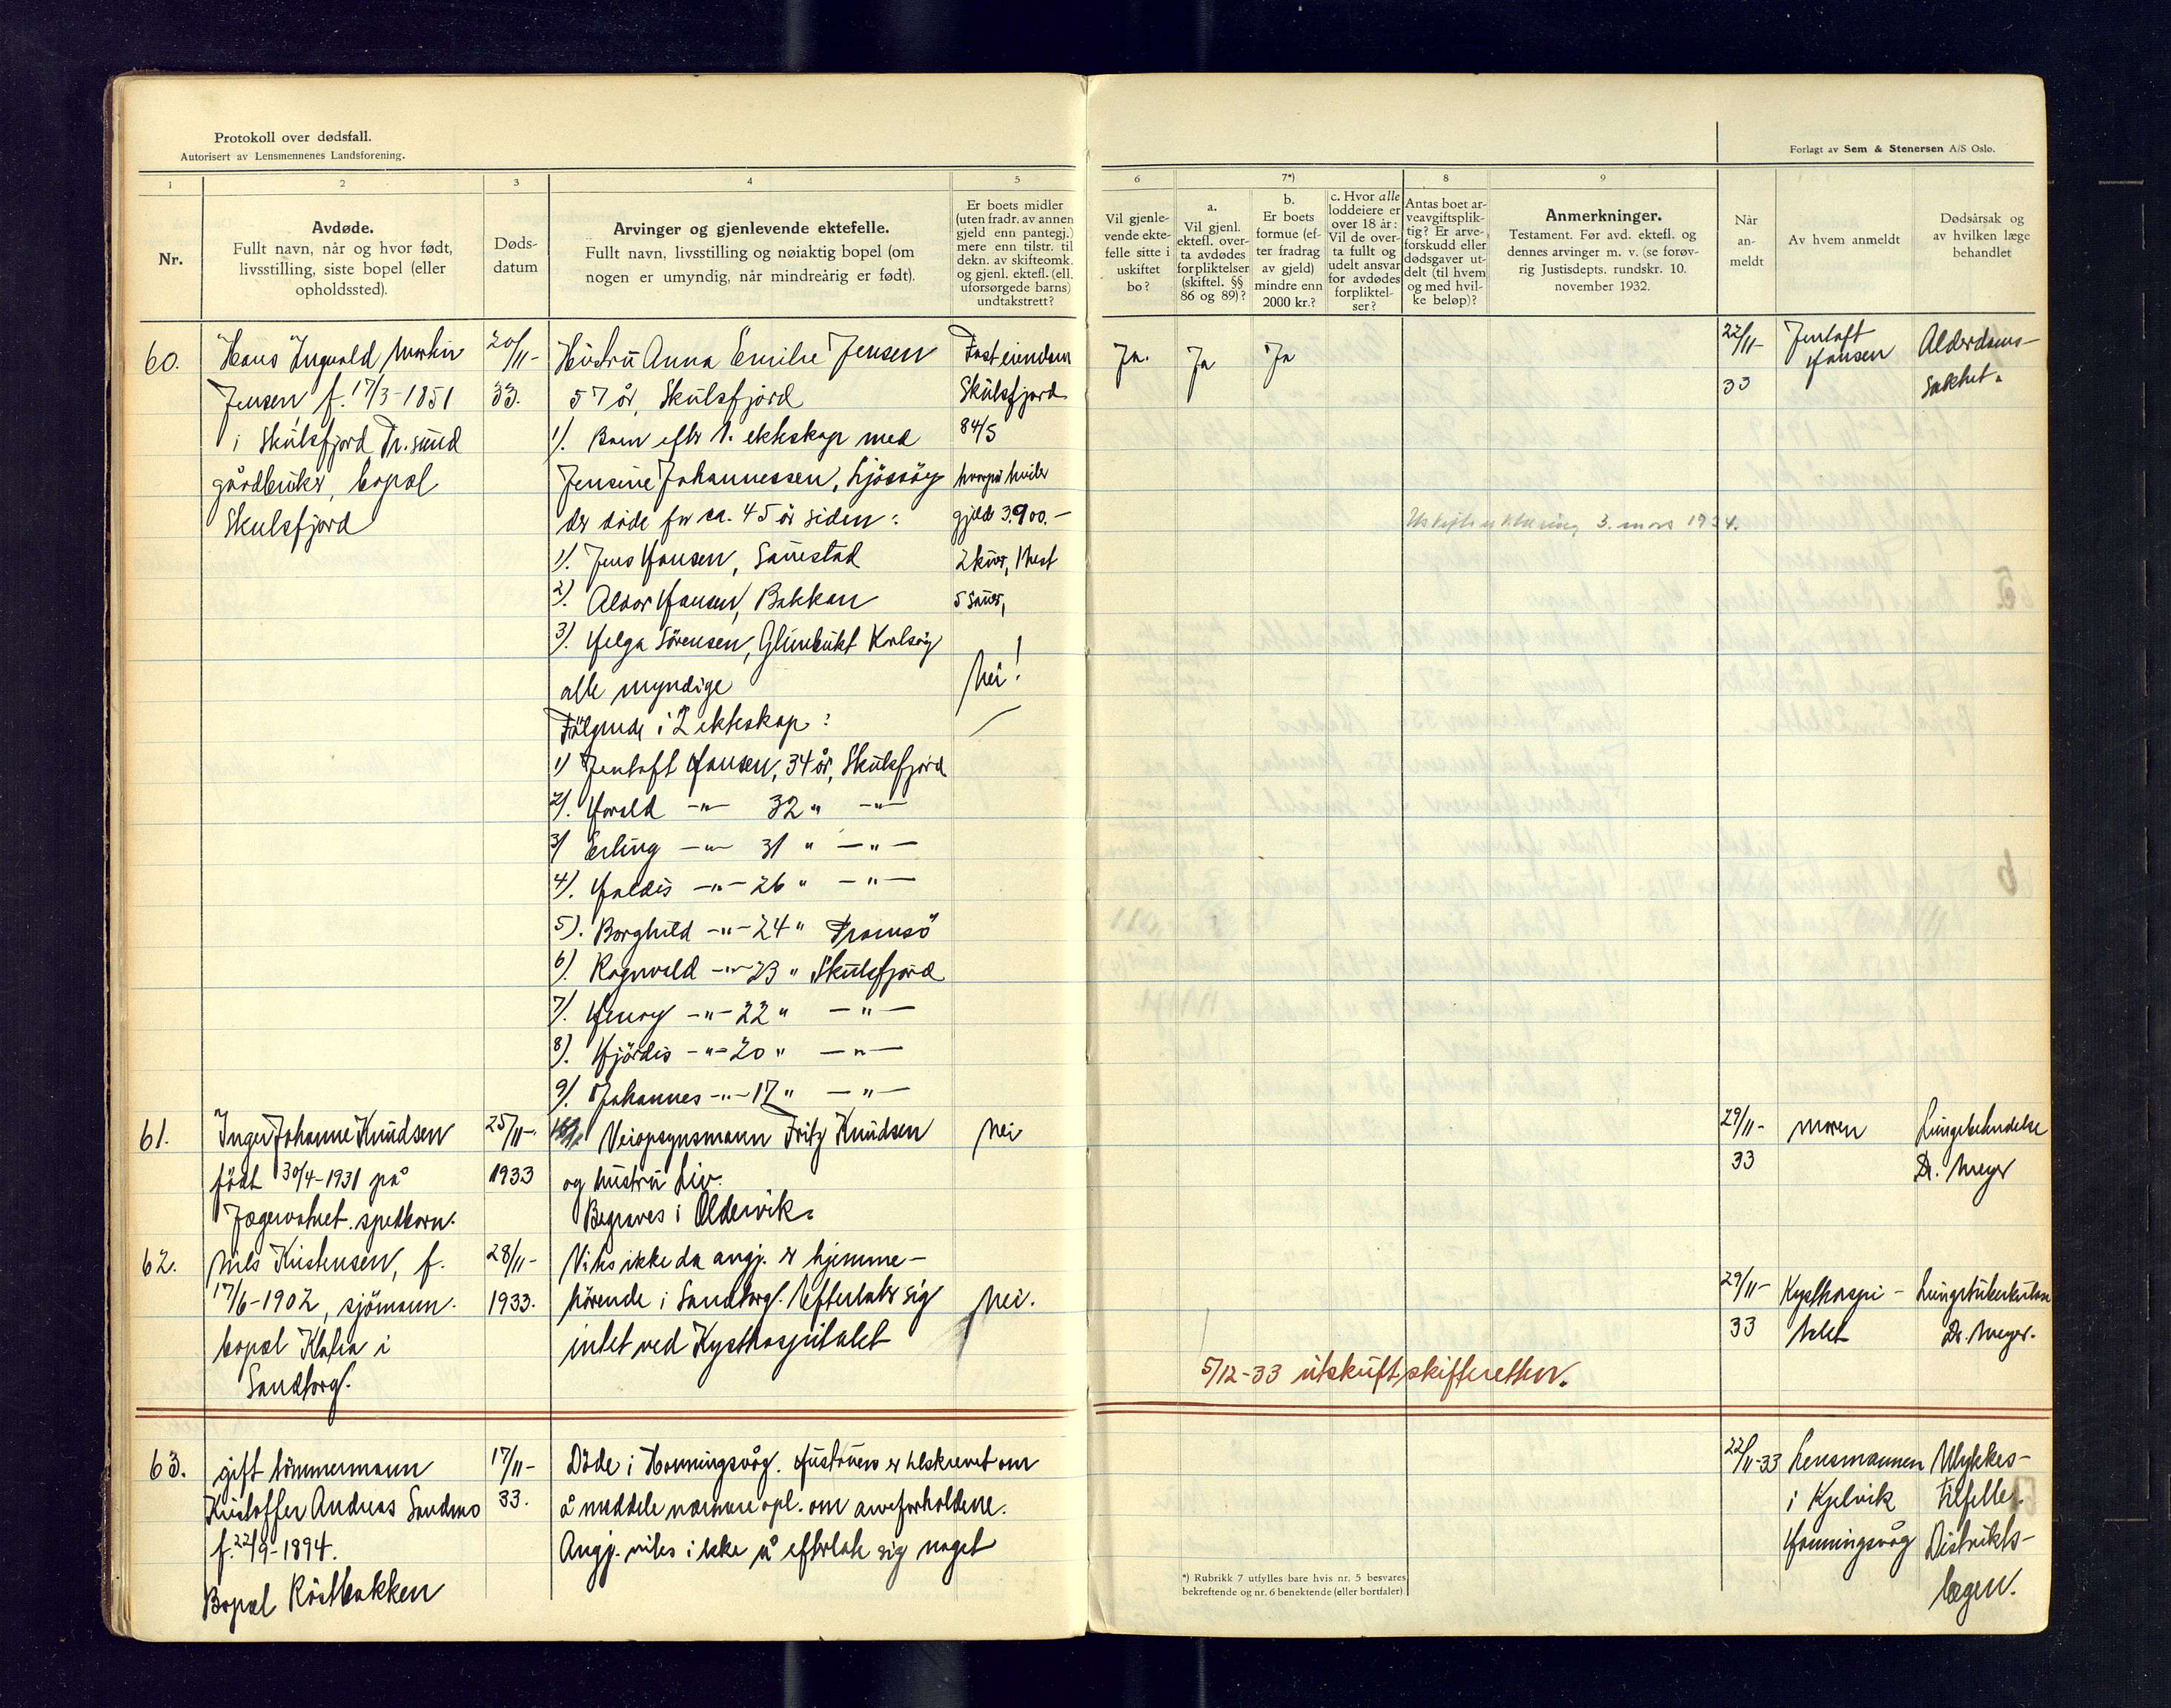 Protokoll over dødsfall.
Autorisert av Lensmennenes Landsforening.
Forlagt av Sem & Stenersen A/S Oslo.
1
2
3
4
5
6
7*)
8
9
Nr.
Avdøde.
Fullt navn, når og hvor født,
livsstilling, siste bopel (eller
opholdssted).
Døds-
datum
Arvinger og gjenlevende ektefelle.
Fullt navn, livsstilling og nøiaktig bopel (om
nogen er umyndig, når mindreårig er født).
Er boets midler
(uten fradr. av annen
gjeld enn pantegj.)
mere enn tilstr. til
dekn. av skifteomk.
og gjenl. ektefl. (ell.
uforsørgede barns)
undtakstrett?
Vil gjenle-
vende ekte-
felle sitte i
uskiftet
bo?
a.
Vil gjenl.
ektefl. over-
ta avdødes
forpliktelser
(skiftel. §§
86 og 89)?
b.
Er boets
formue (ef-
ter fradrag
av gjeld)
mindre enn
2000 kr.?
c. Hvor alle
loddeiere er
over 18 år:
Vil de over-
ta fullt og
udelt ansvar
for avdødes
forpliktel-
ser?
Antas boet ar-
veavgiftsplik-
tig? Er arve-
forskudd eller
dødsgaver ut-
delt (til hvem
og med hvil-
ke beløp)?
Anmerkninger.
Testament. Før avd. ektefl. og
dennes arvinger m. v. (se forøv-
rig Justisdepts. rundskr. 10.
november 1932.
Når
an-
meldt
Av hvem anmeldt
Dødsårsak og
av hvilken læge
behandlet
60.
Hans Ingvald Martin
Jensen f. 17/3-1851
i Skulsfjord Tr.sund
gårdbruker, bopæl
Skulsfjord
20/11-
33.
Hustru Anna Emilie Jensen
57 år, Skulsfjord
1). Barn efter 1. ekteskap med
Jensine Johannessen, Ljøssøy
der døde for ca. 45 år siden:
1). Jens Hansen, Sauestad
2). Aldor Hansen, Bakkan
3). Helga Sørensen, Glimbukt Karlsøy
alle myndige
Følgende i 2 ekteskap:
1) Jentoft Hansen, 34 år, Skulsfjord
2). Harald -"- 32 " -"-
3) Erling -"- 31 " -"-
4). Haldis -"- 26 " -"-
5). Borghild -"- 24 " Tromsø
6). Ragnvald -"- 23 " Skulsfjord
7). Henry -"- 22 " -"-
8). Hjørdis -"- 20 " -"-
9). Johannes -"- 17 " -"-
Fast eiendom
Skulsfjord
84/5
hvorpå hviler
gjeld 3.900.-
2 kuer, 1 hest
5 sauer,
Nei!
Ja.
Ja
Ja
Uskifteerklæring 3. mars 1934.
22/11-
33
Jentoft
Hansen
Alderdoms-
svakhet.
61.
Inger Johanne Knudsen
født 30/4-1931 på
Jægervatnet. spedbarn.
25/11-
1933
Veiopsynsmann Fritz Knudsen
og hustru Liv.
Begraves i Oldervik.
Nei
29/11-
33
Moren
Lungebetendelse
Dr. Meyer
62.
Nils Kristensen, f.
17/6-1902, sjømann.
bopæl Kløfia i
Sandtorg.
28/11-
1933.
Vites ikke da angj. er hjemme-
hørende i Sandtorg. Efterlater sig
intet ved Kysthospitalet
Nei.
5/12-33 utskrift skifteretten.
29/11-
33
Kysthospi-
talet
Lungetuberkulose
Dr. Meyer.
63.
gift tømmermann
Kristoffer Andreas Sandmo
f. 22/9-1894.
Bopæl Røstbakken
17/11-
33.
Døde i Honningsvåg. Hustruen er tilskrevet om
å meddele nærmere opl. om arveforholdene.
Angj. vites ikke å efterlate sig noget
22/11-33
Lensmannen
i Kjelvik
Honningsvåg
Ulykkes-
tilfelle.
Distrikts-
lægen.
*) Rubrikk 7 utfylles bare hvis nr. 5 besvares
bekreftende og nr. 6 benektende (eller bortfaler)